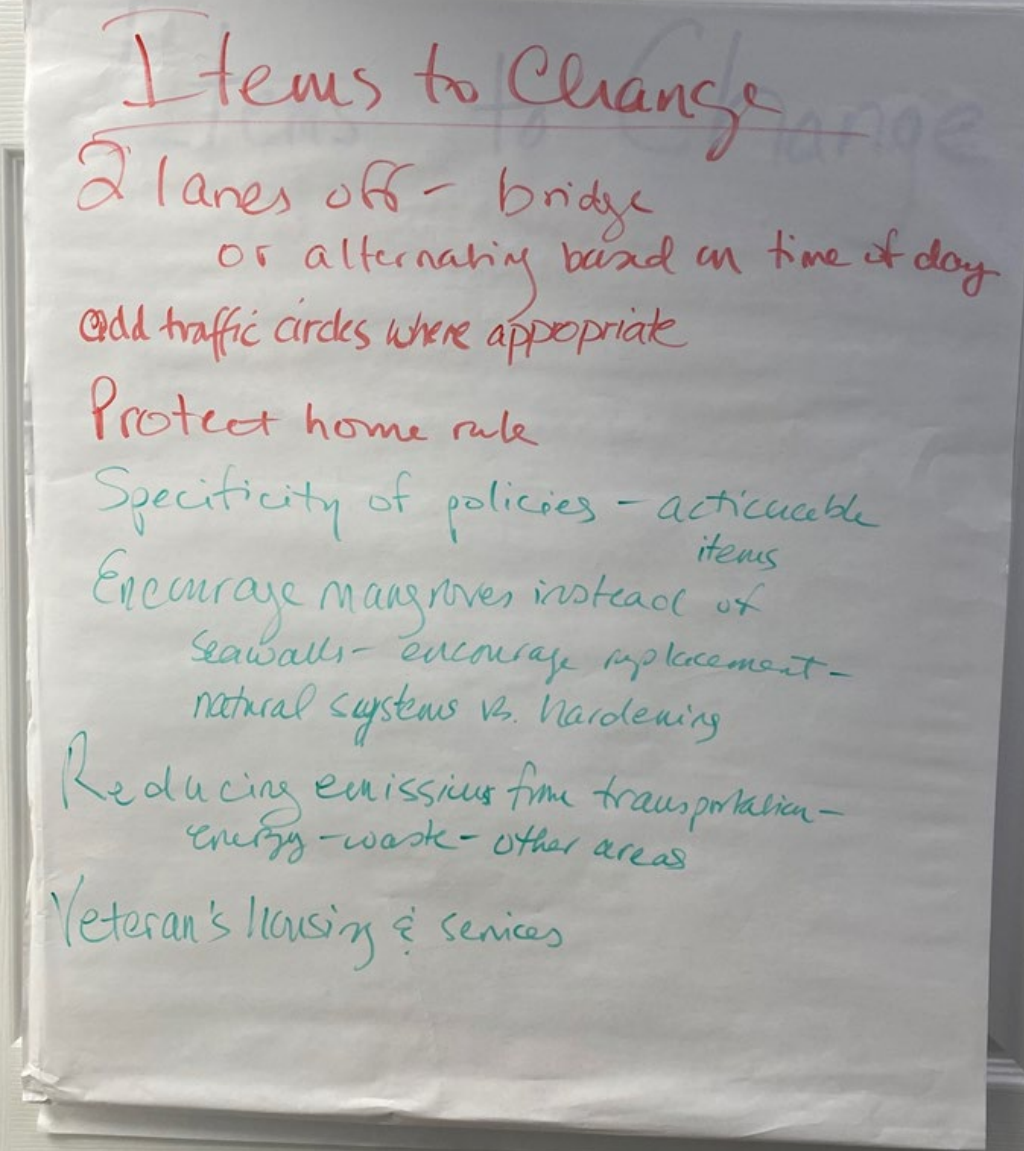 Items to Change
2 lanes off - bridge
or alternating based on time of day
add traffic circles where appopriate
Protect home rule
Specificity of policies - actionable
items
Encourage mangroves instead of
seawalls - encourage replacement -
natural systems vs. hardening
Reducing emissions from transportation -
energy - waste - other areas
Veteran's housing & services